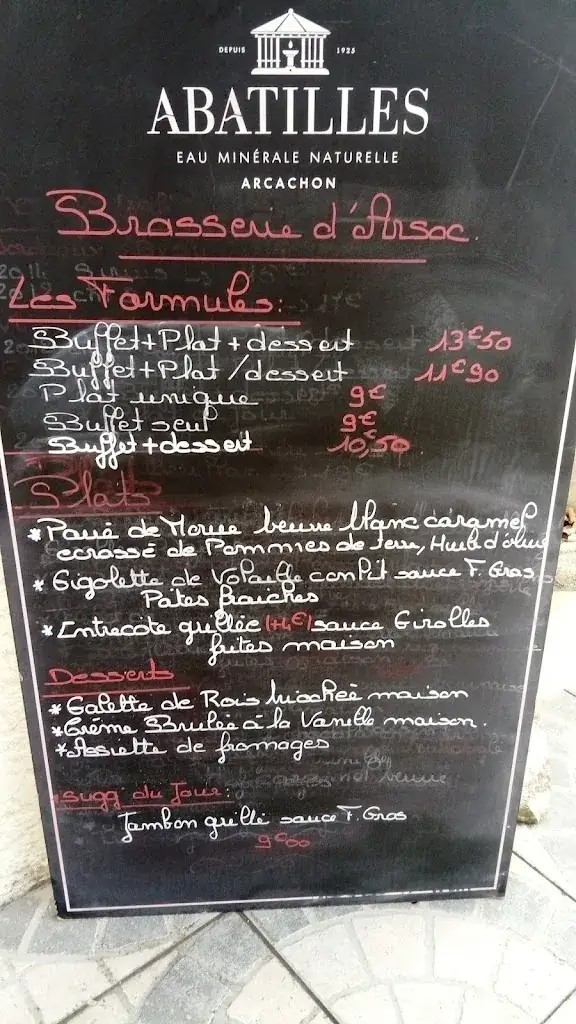 DEPUIS 1925
ABATILLES
EAU MINÉRALE NATURELLE
ARCACHON
Brasserie d'Arsac.
Les Formules:
Buffet+Plat+dessert 13€50
Buffet+Plat/dessert 11€90
Plat unique 9€
Buffet seul 9€
Buffet+dessert 10,50
Plats
*Pavé de Morue beurre blanc caramel
ecrassé de Pommes de terre, Huile d'olive
*Gigolette de Volaille confit sauce F. Gras
Pâtes fraiches
*Entrecote grillée (+4€) sauce Girolles
frites maison
Desserts
*Galette de Rois briochée maison
*Crème Brulée à la Vanille maison.
*Assiette de fromages
Sugg du Jour:
Jambon grillé sauce F. Gras
9€00